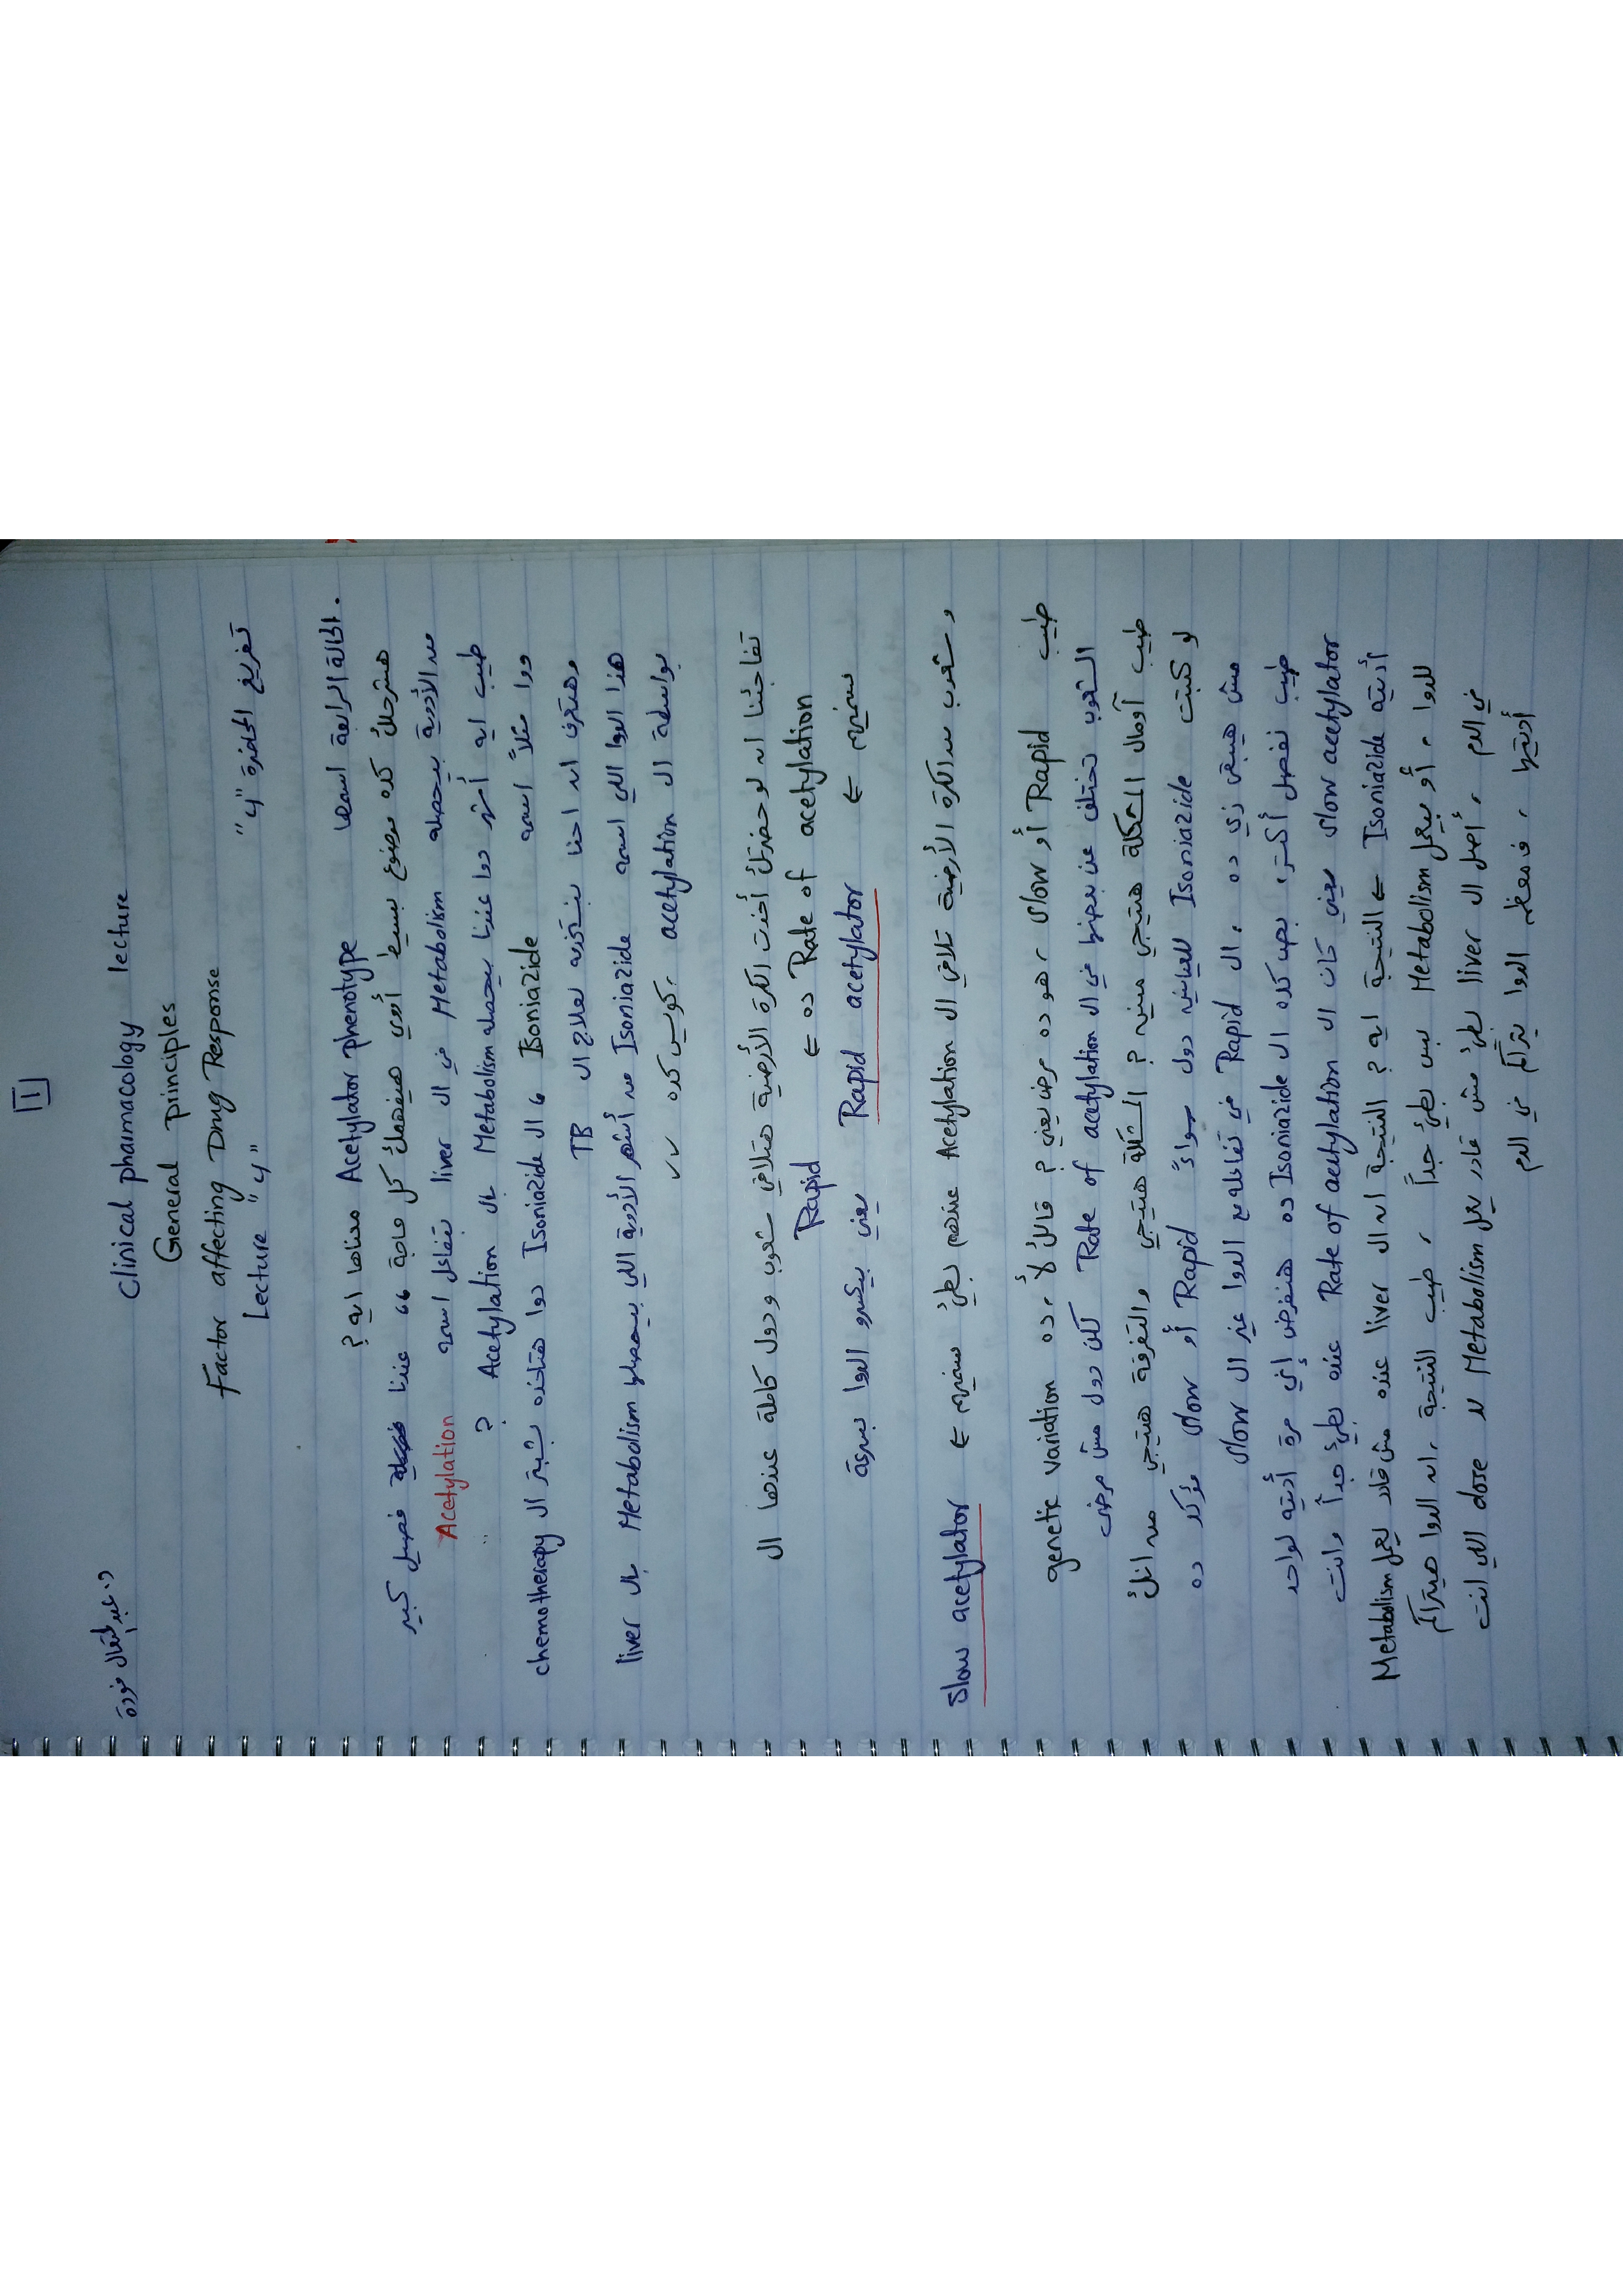 1
د. عبدالمتعال فودة
Clinical pharmacology lecture
General principles
Factor affecting Drug Response
Lecture "4"
تفريغ المحاضرة "4"
الحالة الرابعة اسمها Acetylator phenotype معناها ايه ؟
هنشرحلك كده موضوع بسيط أوي هيفهمك كل حاجة ،، عندنا فصيل كبير
من الأدوية بيحصله Metabolism في ال liver بتفاعل اسمه Acetylation
طيب ايه أشهر دوا عندنا بيحصله Metabolism بال Acetylation ؟
دوا مثلاً اسمه Isoniazide ، ال Isoniazide دوا هتاخده بشبتر ال chemotherapy
وهتعرف ان احنا بنستخدمه لعلاج ال TB
هذا الدوا اللي اسمه Isoniazide من أشهر الأدوية اللي بيحصلها Metabolism بال liver
بواسطة ال acetylation ، كويس كده ✓✓
تفاجئنا ان لو حضرتك أخدت الكرة الأرضية هتلاقي شعوب ودول كاملة عندها ال
Rate of acetylation ده ← Rapid
نسميهم ← Rapid acetylator يعني بيكسرو الدوا بسرعة
و شعوب من الكرة الأرضية تلاقي ال Acetylation عندهم بطئ نسميهم ← Slow acetylator
طيب Rapid أو slow ، هو ده مرض يعني ؟ قالك لأ ، ده genetic variation
الشعوب تختلف عن بعضها في ال Rate of acetylation لكن دول مش مرضى
طيب أومال المشكلة هتيجي منين ؟ المشكلة هتيجي والتفرقة هتيجي من انك
لو كتبت Isoniazide للعيانين دول سواءً Rapid أو slow مؤكد ده
مش هيبقى زي ده ، ال Rapid في تفاعله مع الدوا غير ال slow
طيب نفصل أكتر ، بص كده ال Isoniazide ده هنفرض إني مرة أديته لواحد
slow acetylator يعني كان ال Rate of acetylation عنده بطئ جداً وانت
أديته Isoniazide ← النتيجة ايه ؟ النتيجة ان ال liver عنده مش قادر يعمل Metabolism
للدوا ، أو بيعمل Metabolism بس بطئ جداً ، طيب النتيجة ، ان الدوا هيتراكم
في الدم ، أصل ال liver بطئ مش قادر يعمل Metabolism لل dose اللي انت
أديتها ، فمعظم الدوا يتراكم في الدم